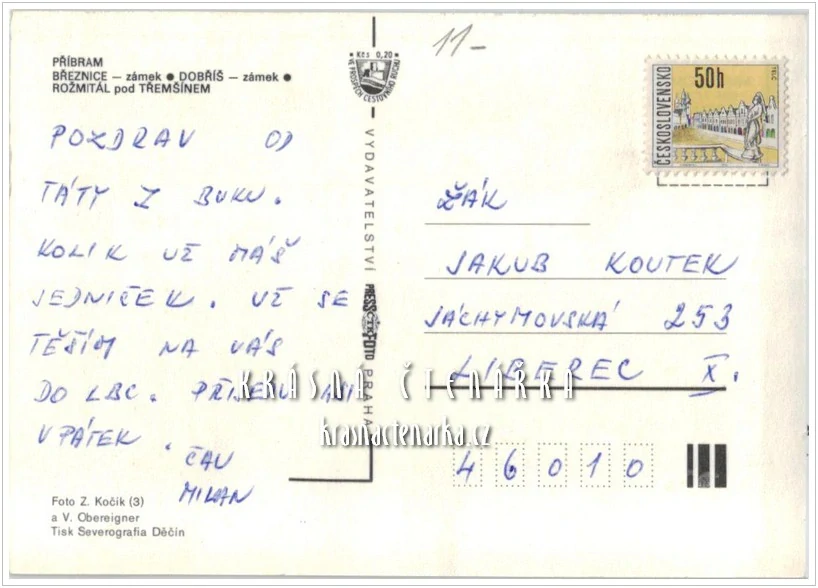 PŘÍBRAM
BŘEZNICE – zámek ● DOBŘÍŠ – zámek ●
ROŽMITÁL pod TŘEMŠÍNEM
POZDRAV OD
TÁTY Z BUKU.
KOLIK UŽ MÁŠ
JEDNIČEK. UŽ SE
TĚŠÍM NA VÁS
DO LBC. PŘIJEDU ASI
V PÁTEK.
ČAU
MILAN
Foto Z. Kočík (3)
a V. Obereigner
Tisk Severografia Děčín
Kčs 0,20
VE PROSPĚCH CESTOVNÍHO RUCHU
VYDAVATELSTVÍ PRESSFOTO PRAHA
ČTK
11-
ČESKOSLOVENSKO
50h
TELČ
ŽÁK
JAKUB KOUTEK
JÁCHYMOVSKÁ 253
LIBEREC X.
46010
KRÁSNÁ ČTENÁŘKA
krasnactenarka.cz